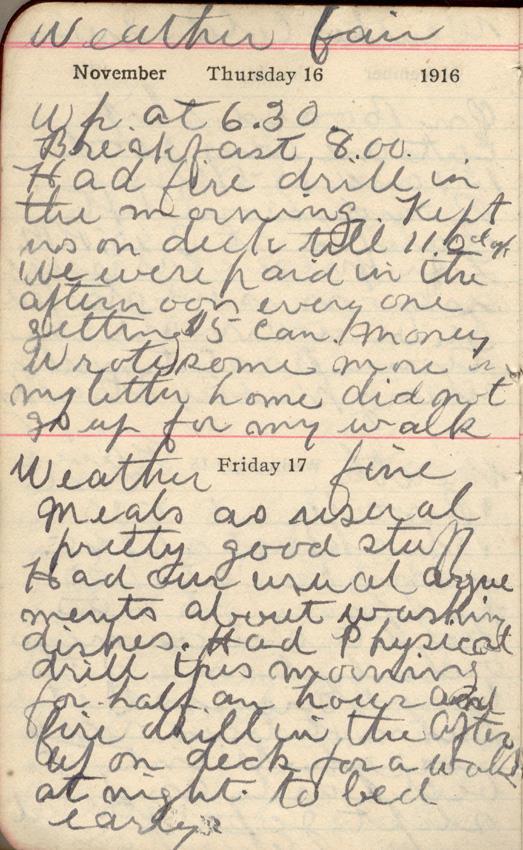 Weather fair
November Thursday 16 1916
Up. at 6.30.
Breakfast 8.00
Had fire drill in
the morning. Kept
us on deck till 11.
We were paid in the
afternoon every one
getting $5 can. money
Wrote some more in
my letter home did not
go up for my walk
Weather Friday 17 fine
Meals as useral
pretty good stuff
Had our usual argue
ments about washin
dishes. Had Physical
drill this morning
for half an hour and
fire drill in the After
Up on deck for a walk
at night. to bed
early